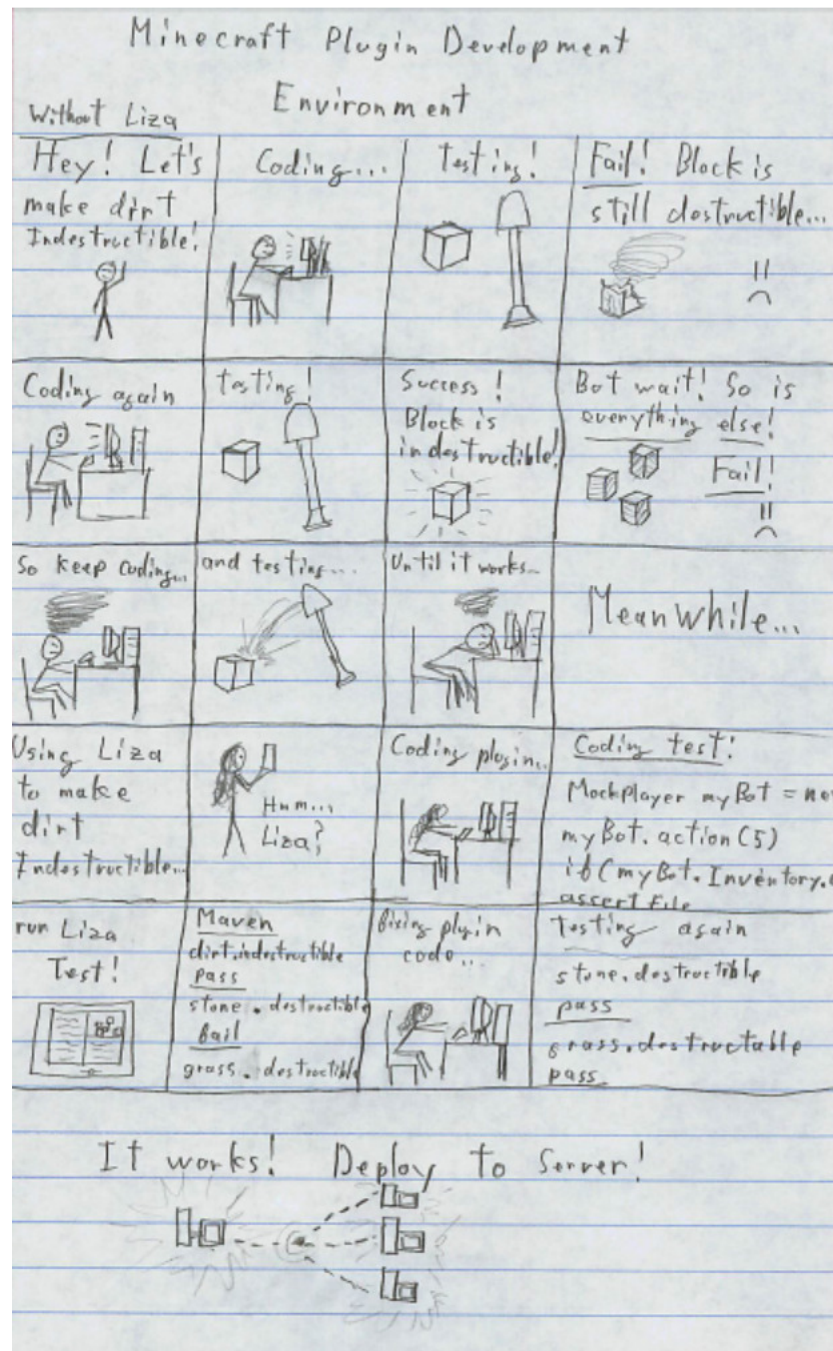 Minecraft Plugin Development
Environment
Without Liza
Hey! Let's
make dirt
Indestructible!
Coding...
Testing!
Fail! Block is
still destructible...
Coding again
testing!
Success!
Block is
indestructible!
But wait! So is
everything else!
Fail!
So keep coding...
and testing...
Until it works...
Meanwhile...
Using Liza
to make
dirt
Indestructible...
Hum...
Liza?
Coding plugin...
Coding test!
Mockplayer myBot = new
myBot.action(5)
if(myBot.Inventory.
assert File
run Liza
Test!
Maven
dirt.indestructible
pass
stone.destructible
fail
grass.destructible
fixing plugin
code...
testing again
stone.destructible
pass
grass.destructable
pass
It works! Deploy to Server!